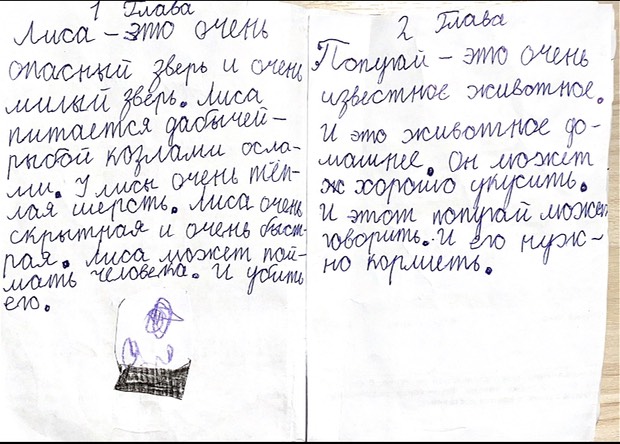 1 Глава
Лиса – это очень
опасный зверь и очень
милый зверь. Лиса
питается дабычей –
рыбой козлами осла-
ми. У лисы очень тёп-
лая шерсть. Лиса очень
скрытная и очень быст-
рая. Лиса может пой-
мать человека. И убить
его.
2 Глава
Попугай – это очень
известное животное.
И это животное до-
машнее. Он может
хорошо укусить.
И этот попугай может
говорить. И его нуж-
но кормить.